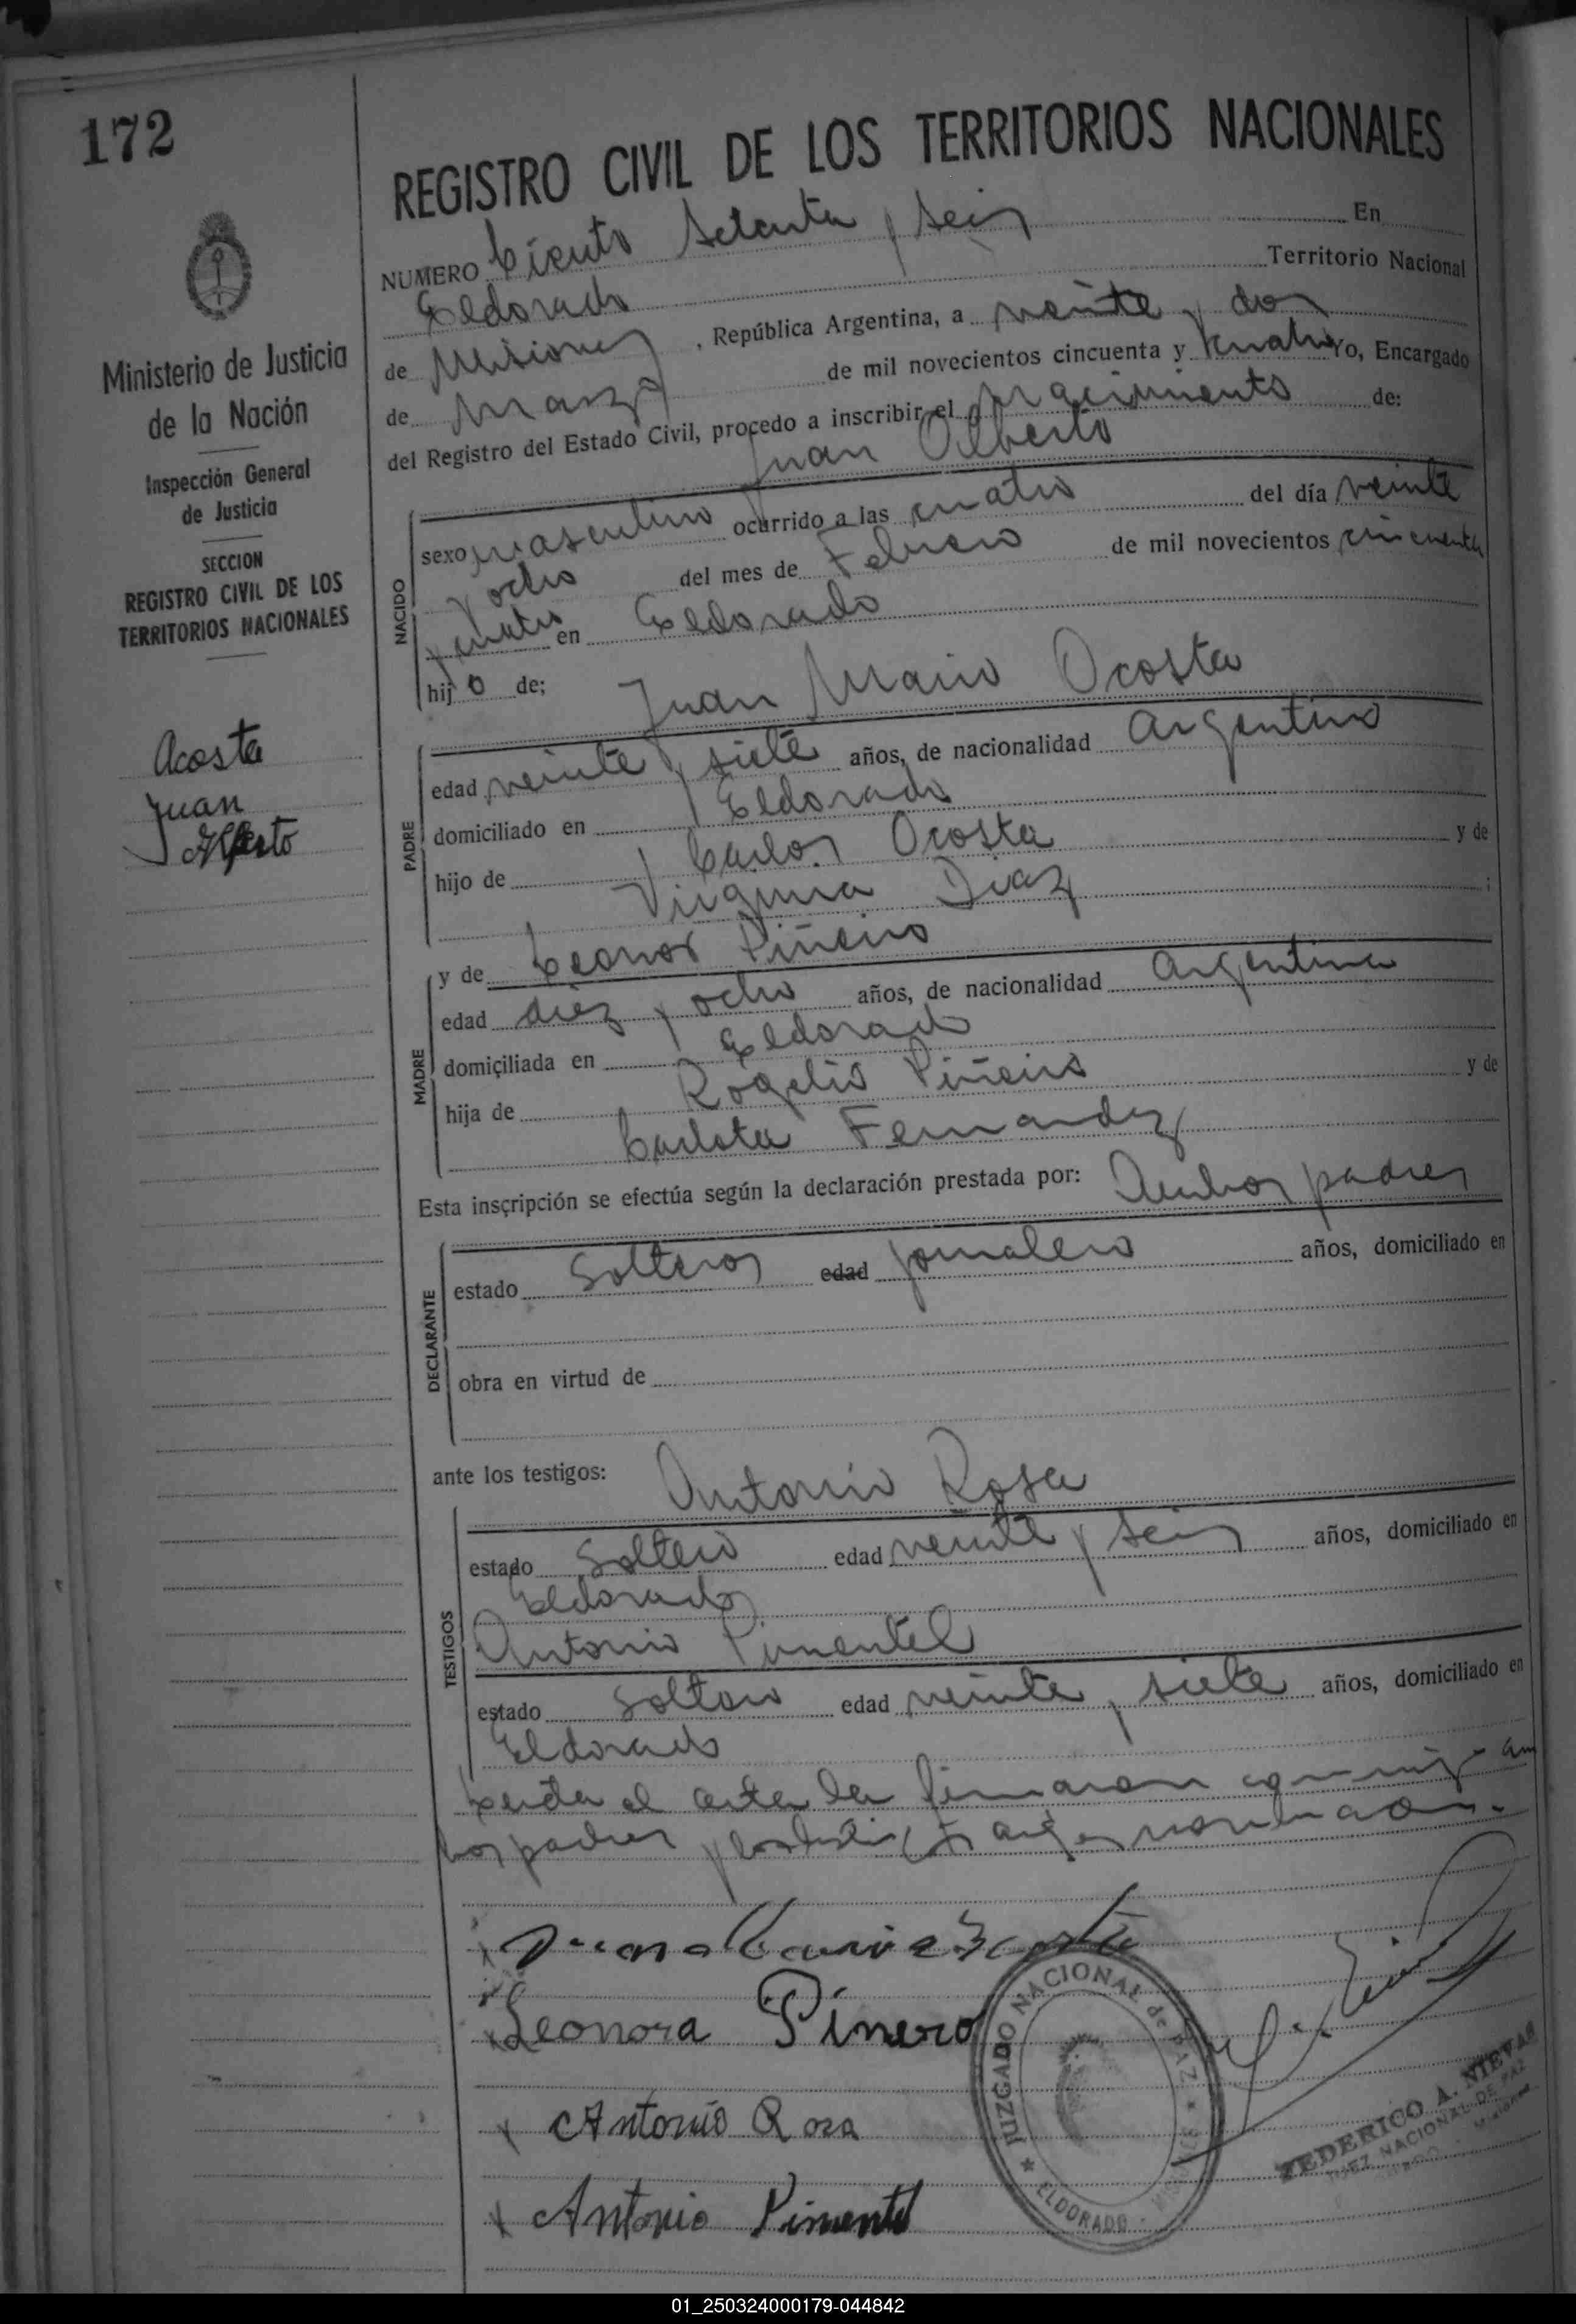 172
Ministerio de Justicia
de la Nación
Inspección General
de Justicia
SECCION
REGISTRO CIVIL DE LOS
TERRITORIOS NACIONALES
Acosta
Juan
Alberto
REGISTRO CIVIL DE LOS TERRITORIOS NACIONALES
NUMERO Ciento Setenta y seis En
Eldorado Territorio Nacional
de Misiones, República Argentina, a veinte y dos
de Marzo de mil novecientos cincuenta y cuatro Yo, Encargado
del Registro del Estado Civil, procedo a inscribir el nacimiento de:
Juan Alberto
NACIDO
sexo masculino ocurrido a las cuatro del día veinte
y ocho del mes de Febrero de mil novecientos cincuenta
y cuatro en Eldorado
hijo de; Juan Mario Acosta
PADRE
edad veinte y siete años, de nacionalidad argentino
domiciliado en Eldorado
hijo de Carlos Acosta y de
Virginia Diaz ;
MADRE
y de Leonor Piñeiro
edad diez y ocho años, de nacionalidad argentina
domiciliada en Eldorado
hija de Rogelio Piñeiro y de
Carlota Fernandez
Esta inscripción se efectúa según la declaración prestada por: Ambos padres
DECLARANTE
estado Solteros edad jornalero años, domiciliado en
obra en virtud de
ante los testigos: Antonio Rosa
TESTIGOS
estado Soltero edad veinte y seis años, domiciliado en
Eldorado
Antonio Pimentel
estado Soltero edad veinte y siete años, domiciliado en
Eldorado
Leida el acta la firmaron conmigo am
bos padres y los testigos
Leonora Pinero
x Antonio Rosa
x Antonio Pimentel
JUZGADO NACIONAL de PAZ
ELDORADO - MISIONES
FEDERICO A. NIEVAS
JUEZ NACIONAL DE PAZ
01_250324000179-044842